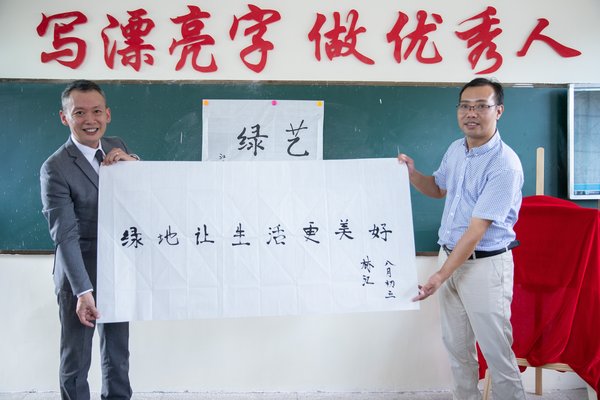 写漂亮字 做优秀人
绿艺
江
绿地让生活更美好
八月初三